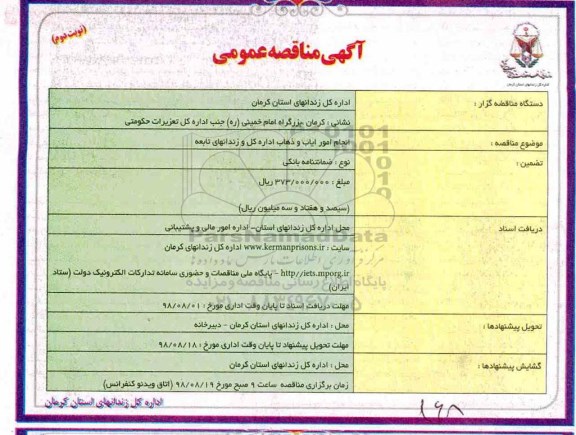 (نوبت دوم)
آگهی مناقصه عمومی
دستگاه مناقصه گزار :
اداره کل زندانهای استان کرمان
نشانی : کرمان -بزرگراه امام خمینی (ره) جنب اداره کل تعزیرات حکومتی
موضوع مناقصه :
انجام امور ایاب و ذهاب اداره کل و زندانهای تابعه
تضمین :
نوع : ضمانتنامه بانکی
مبلغ : ۳۷۳/۰۰۰/۰۰۰ ریال
(سیصد و هفتاد و سه میلیون ریال)
دریافت اسناد
محل اداره کل زندانهای استان- اداره امور مالی و پشتیبانی
سایت : www.kermanprisons.ir اداره کل زندانهای کرمان
http//iets.mporg.ir – پایگاه ملی مناقصات و حضوری سامانه تدارکات الکترونیک دولت (ستاد
ایران)
مهلت دریافت اسناد تا پایان وقت اداری مورخ : ۹۸/۰۸/۰۱
تحویل پیشنهادها :
محل : اداره کل زندانهای استان کرمان - دبیرخانه
مهلت تحویل پیشنهاد تا پایان وقت اداری مورخ : ۹۸/۰۸/۱۸
گشایش پیشنهادها :
محل : اداره کل زندانهای استان کرمان
زمان برگزاری مناقصه ساعت ۹ صبح مورخ ۹۸/۰۸/۱۹ (اتاق ویدئو کنفرانس)
اداره کل زندانهای استان کرمان
ParsNamadData
پایگاه اطلاع رسانی مناقصه و مزایده